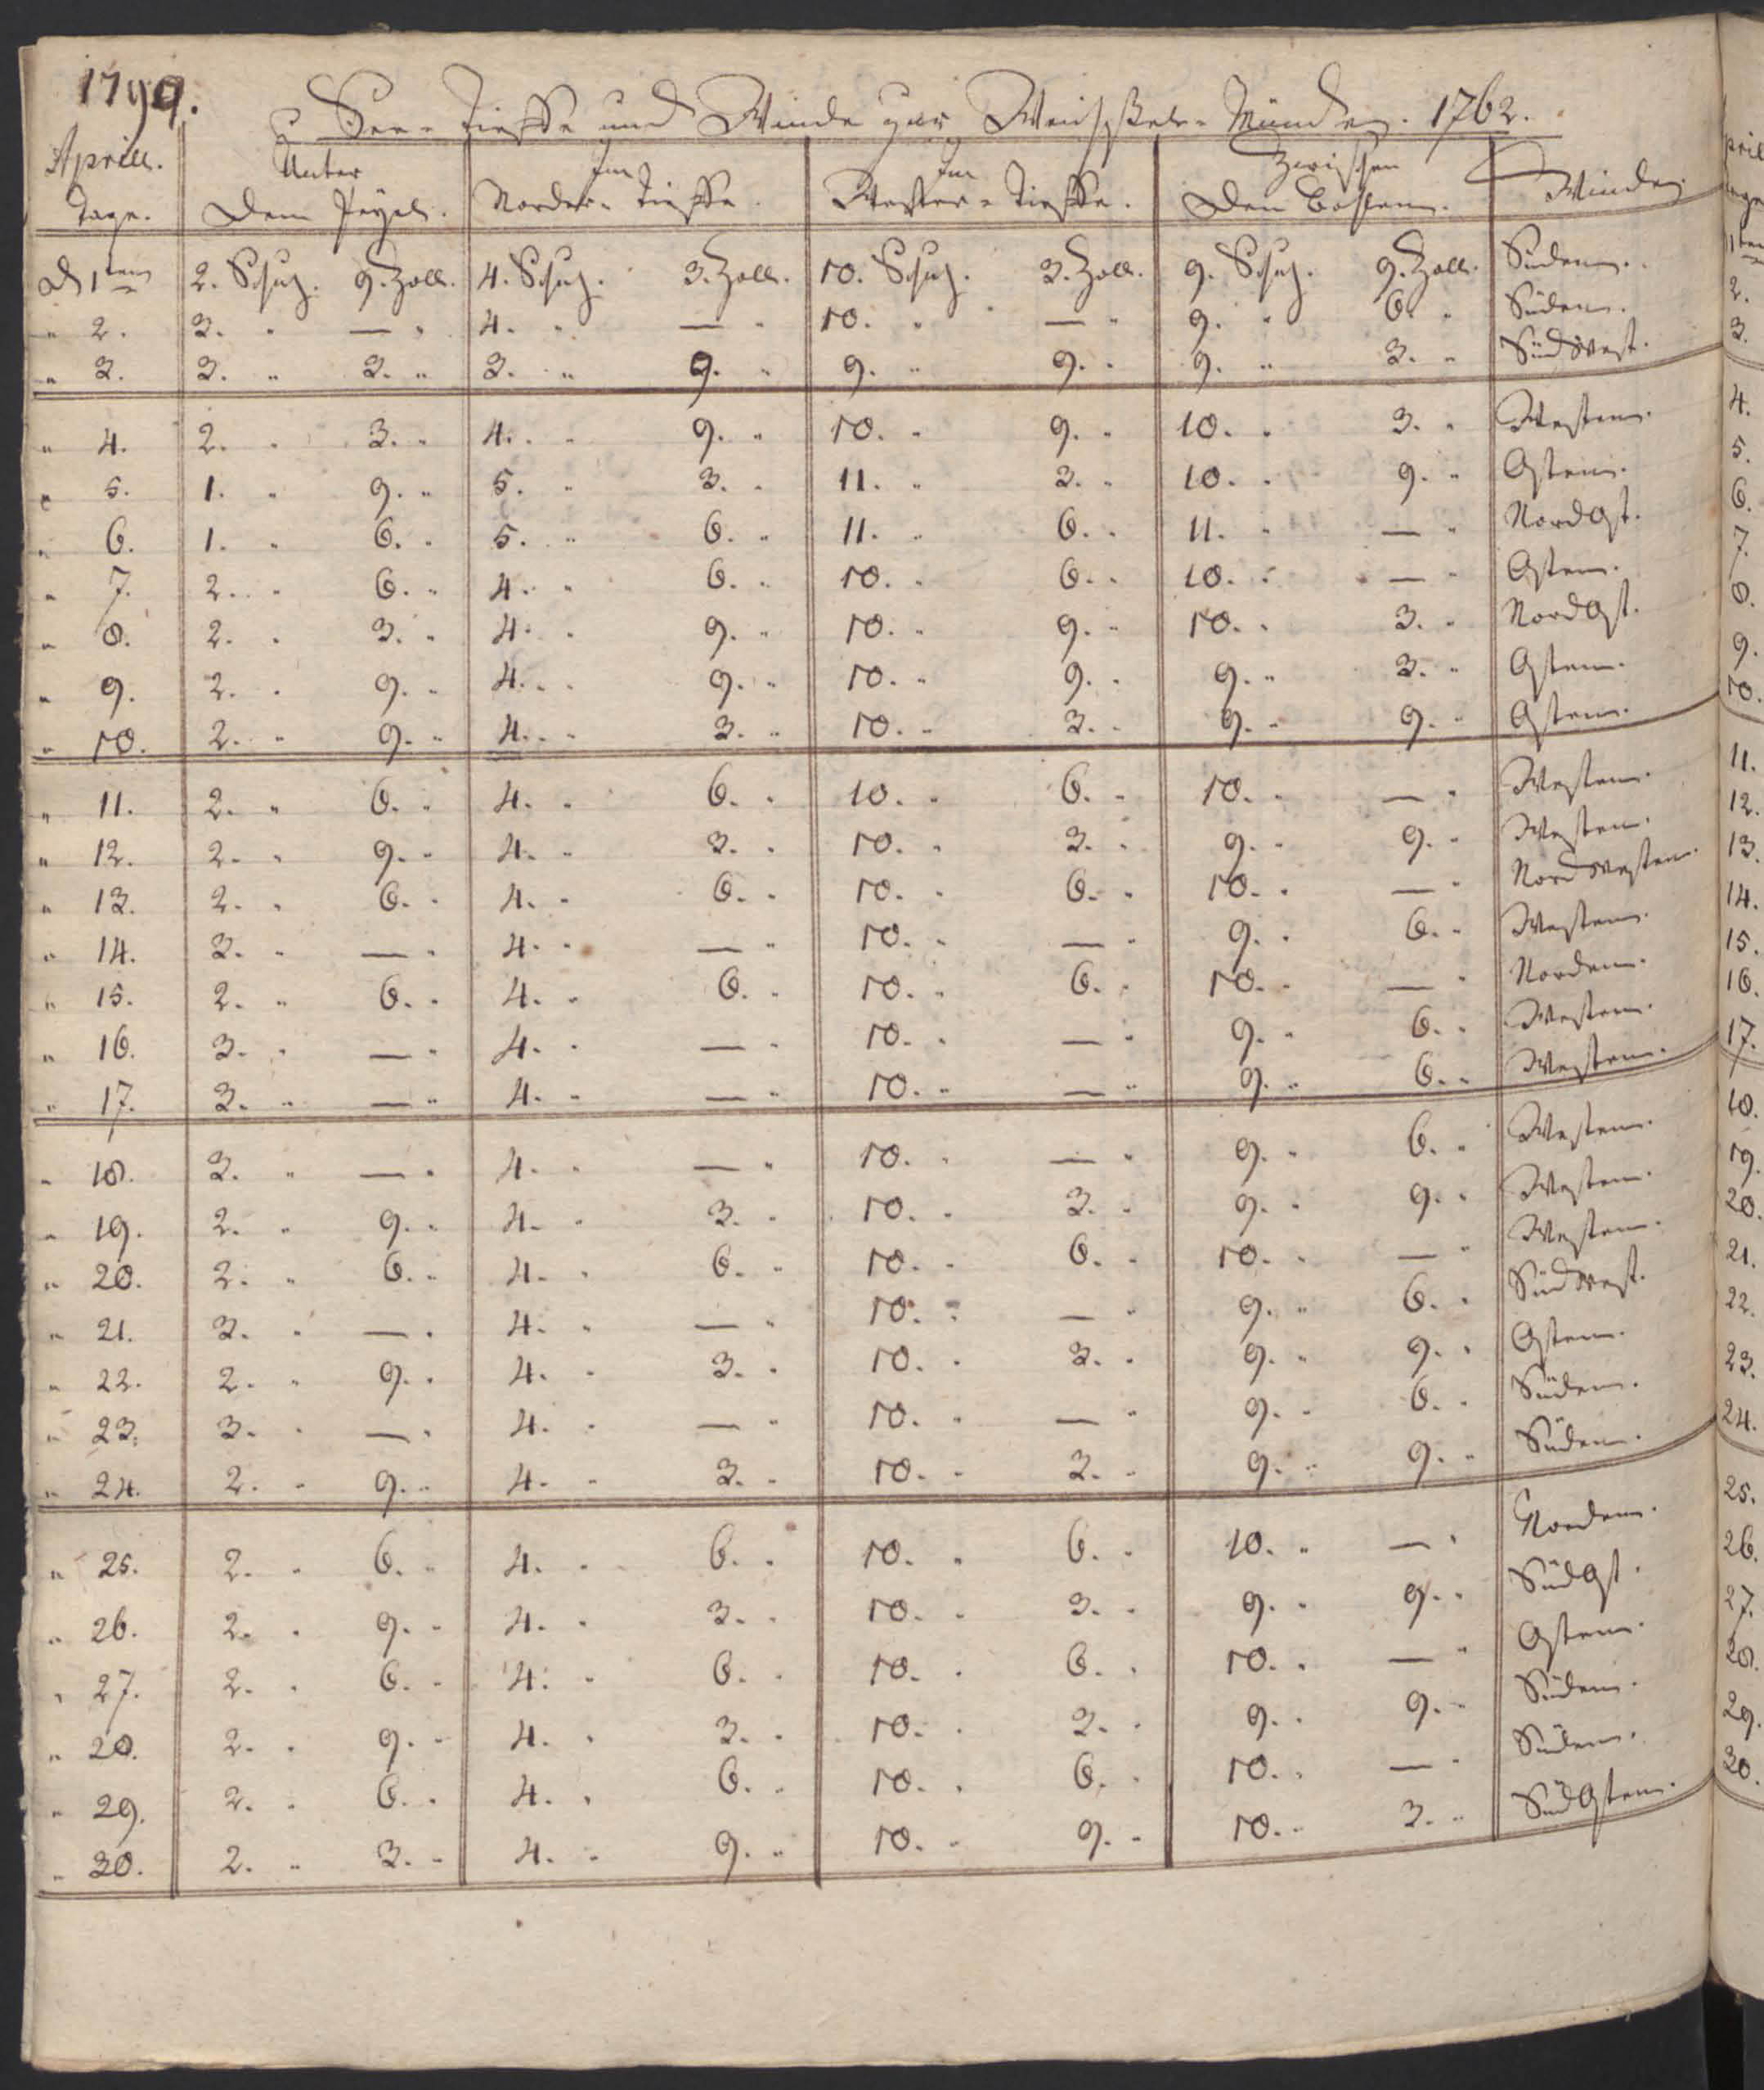 1799.
See- Tieffe und Winde zur Weichsel- Münde. 1762.
Aprill. Unter Im Im Zwischen
Tage. Dem Peyel. Norder- Tieffe. Wester- Tieffe. Den Winde
D 1ten 2. Schuh. 9. Zoll. 4. Schuh. 3. Zoll. 10. Schuh. 3. Zoll. 9. Schuh. 9. Zoll. Süden.
" 2. 3. " — " 4. " — " 10. " — " 9. " 6. " Süden.
" 3. 3. " 3. " 3. " 9. " 9. " 9. " 9. " 3. " Südwest.
" 4. 2. " 3. " 4. " 9. " 10. " 9. " 10. " 3. " Westen.
" 5. 1. " 9. " 5. " 3. " 11. " 3. " 10. " 9. " Osten.
" 6. 1. " 6. " 5. " 6. " 11. " 6. " 11. " — " NordOst.
" 7. 2. " 6. " 4. " 6. " 10. " 6. " 10. " — " Osten.
" 8. 2. " 3. " 4. " 9. " 10. " 9. " 10. " 3. " NordOst.
" 9. 2. " 9. " 4. " 9. " 10. " 9. " 9. " 3. " Osten.
" 10. 2. " 9. " 4. " 3. " 10. " 3. " 9. " 9. " Osten.
" 11. 2. " 6. " 4. " 6. " 10. " 6. " 10. " — " Westen.
" 12. 2. " 9. " 4. " 3. " 10. " 3. " 9. " 9. " Westen.
" 13. 2. " 6. " 4. " 6. " 10. " 6. " 10. " — " Nordwesten.
" 14. 3. " — " 4. " — " 10. " — " 9. " 6. " Westen.
" 15. 2. " 6. " 4. " 6. " 10. " 6. " 10. " — " Norden.
" 16. 3. " — " 4. " — " 10. " — " 9. " 6. " Westen.
" 17. 3. " — " 4. " — " 10. " — " 9. " 6. " Westen.
" 18. 3. " — " 4. " — " 10. " — " 9. " 6. " Westen.
" 19. 2. " 9. " 4. " 3. " 10. " 3. " 9. " 9. " Westen.
" 20. 2. " 6. " 4. " 6. " 10. " 6. " 10. " — " Westen.
" 21. 3. " — " 4. " — " 10. " — " 9. " 6. " Südwest.
" 22. 2. " 9. " 4. " 3. " 10. " 3. " 9. " 9. " Osten.
" 23. 3. " — " 4. " — " 10. " — " 9. " 6. " Süden.
" 24. 2. " 9. " 4. " 3. " 10. " 3. " 9. " 9. " Süden.
" 25. 2. " 6. " 4. " 6. " 10. " 6. " 10. " — " Norden.
" 26. 2. " 9. " 4. " 3. " 10. " 3. " 9. " 9. " SüdOst.
" 27. 2. " 6. " 4. " 6. " 10. " 6. " 10. " — " Osten.
" 28. 2. " 9. " 4. " 3. " 10. " 3. " 9. " 9. " Süden.
" 29. 2. " 6. " 4. " 6. " 10. " 6. " 10. " — " Süden.
" 30. 2. " 3. " 4. " 9. " 10. " 9. " 10. " 3. " SüdOsten.
1ten
2.
3.
4.
5.
6.
7.
8.
9.
10.
11.
12.
13.
14.
15.
16.
17.
18.
19.
20.
21.
22.
23.
24.
25.
26.
27.
28.
29.
30.